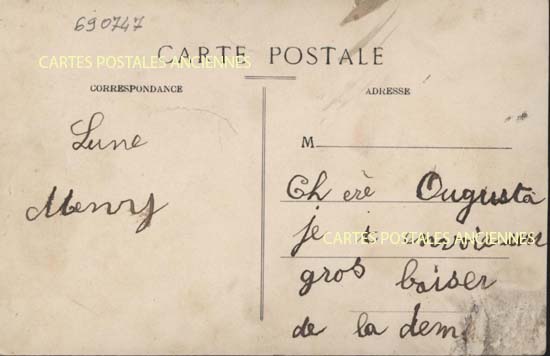 690747
CARTE POSTALE
CARTES POSTALES ANCIENNES
CORRESPONDANCE
ADRESSE
Lune
Menry
M
Ch erè Ougusta
je
CARTES POSTALES ANCIENNES
gros baiser
de la dem